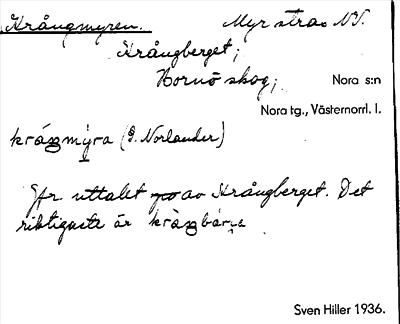 Krångmyren. Myr strax NV.
Krångberget;
Hornö skog; Nora s:n
Nora tg., Västernorrl. l.
kråŋmy̆ra (E. Norlander)
Jfr. uttalet av Krångberget. Det
riktigaste är kråŋbærje
Sven Hiller 1936.